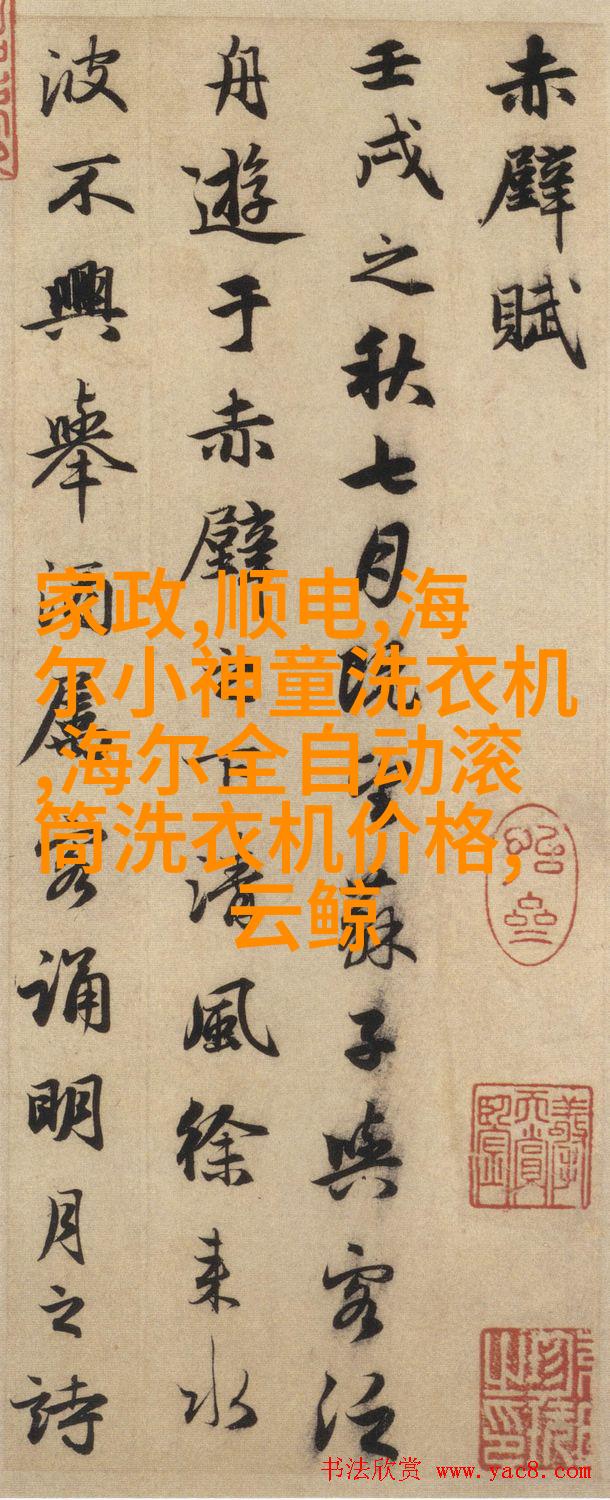 赤壁賦
壬戌之秋七月既望蘇子與客泛
舟遊于赤壁之下清風徐来水
波不興舉酒屬客誦明月之詩
家政,顺电,海
尔小神童洗衣机
,海尔全自动滚
筒洗衣机价格,
云鲸
书法欣赏 www.yac8.com